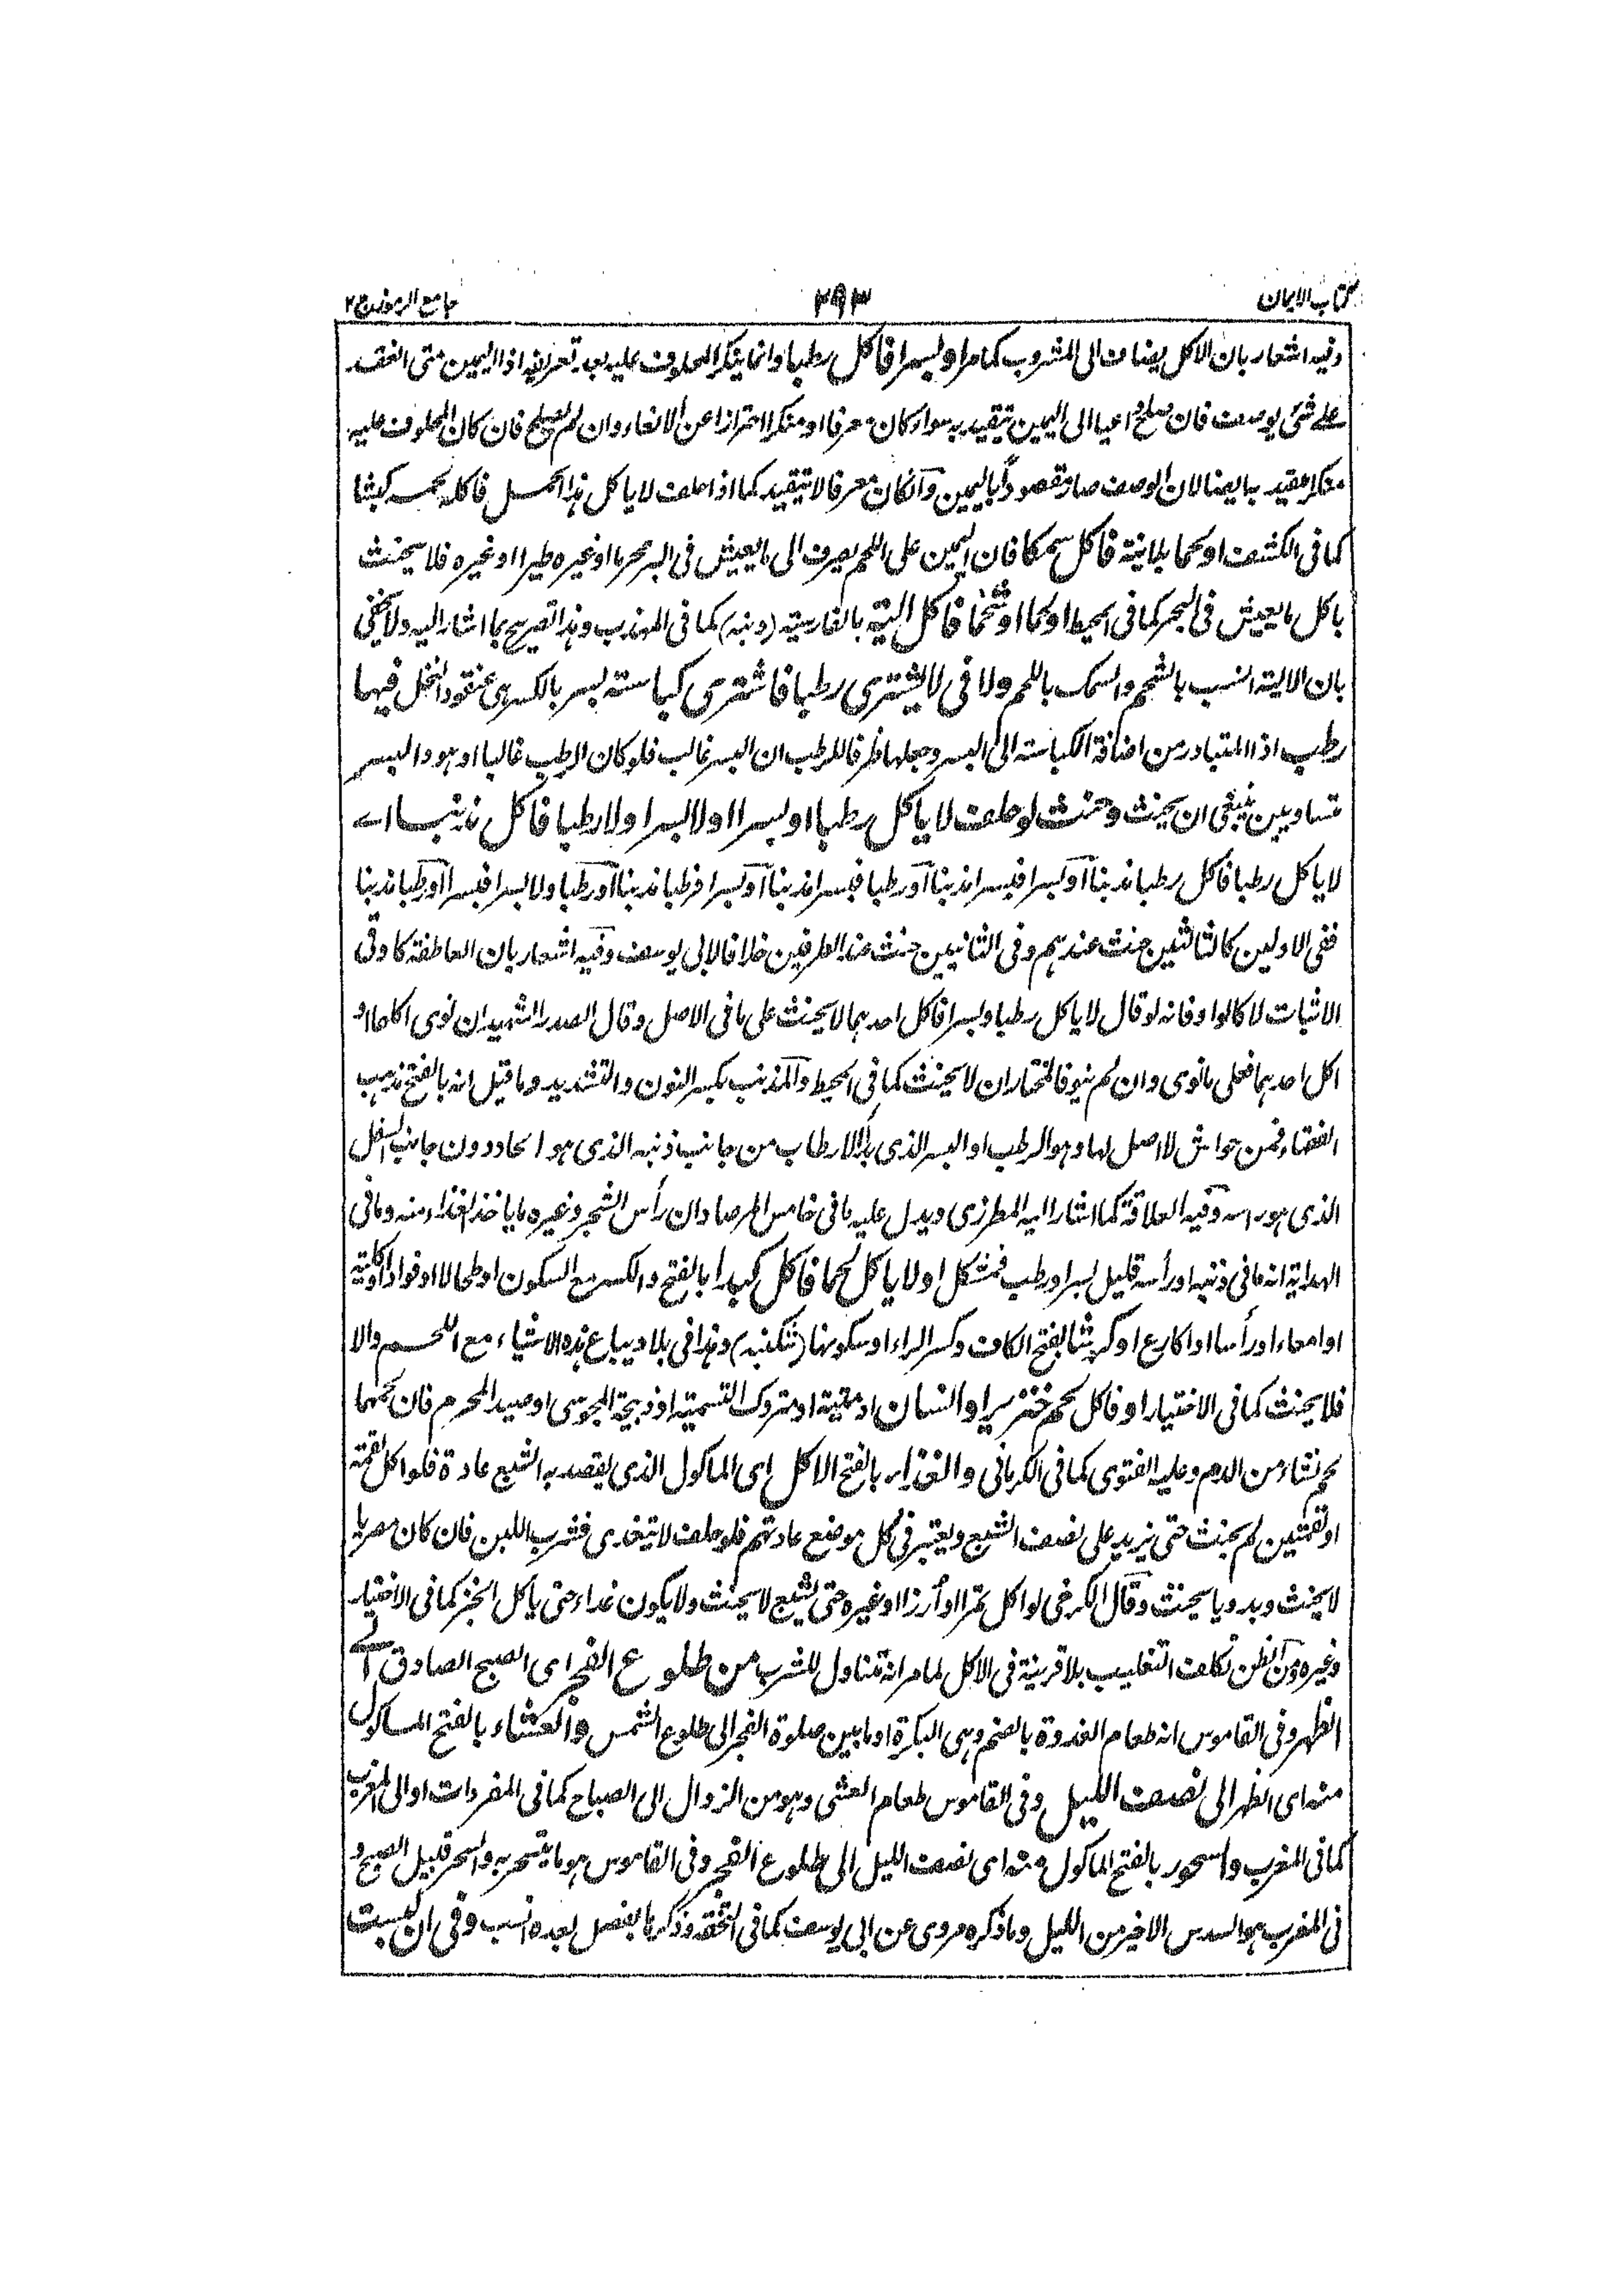 كتاب الايمان
٣٩٣
جامع الرموز ج ٢
وفيه اشعار بان الاكل يضاف الى المشروب كما مر او بسرا فاكل رطبا وانما ينكر المحلوف عليه بعد تعريفه اذ اليمين متى انعقد
على شئ بوصف فان صلح داعيا الى اليمين تتقيد به سواء كان معرفا او منكرا احترازا عن الالغاء وان لم يصلح فان كان المحلوف عليه
منكرا يتقيد به ايضا لان الوصف صار مقصودا باليمين وان كان معرفا لا تتقيد كما اذا حلف لا ياكل هذا الحمل فاكله لحمه كبشا
كما فى الكشف او لحما بلا نية فاكل سمكا فان اليمين على اللحم يصرف الى ما يعيش فى البر محرما او غيره طيرا او غيره فلا يحنث
باكل ما يعيش فى البحر كما فى المحيط او لحما او شحما فاكل الية بالفارسية (دنبه) كما فى المهذب وهذا تصريح بما اشار اليه ولا يخفى
بان الالية انسب بالشحم والسمك باللحم ولا فى لا يشترى رطبا فاشترى كباسة بسر بالكسر هى عنقود النخل فيها
رطب اذ المتبادر من اضافة الكباسة الى البسر وجعلها ظرفا للرطب ان البسر غالب فلو كان الرطب غالبا او هو والبسر
متساويين ينبغى ان يحنث وحنث لو حلف لا ياكل رطبا او بسرا او لا بسرا ولا رطبا فاكل مذنبا اے
لا ياكل رطبا فاكل رطبا مذنبا او بسرا فبسرا مذنبا او رطبا فبسرا مذنبا او بسرا فرطبا مذنبا او رطبا ولا بسرا فبسرا او رطبا مذنبا
ففى الاولين كالثالثين حنث عندهم وفى الثانيين حنث عند الطرفين خلافا لابى يوسف وفيه اشعار بان العاطفة كاوفى
الاثبات لا كالواو فانه لو قال لا ياكل رطبا وبسرا فاكل احدهما لا يحنث على ما فى الاصل وقال الصدر الشهيد ان نوى اكلهما او
اكل احدهما فعلى ما نوى وان لم ينو فالمختار ان لا يحنث كما فى المحيط والمذنب بكسر النون والتشديد وما قيل انه بالفتح مذهب
الفقهاء فمن حواش لا اصل لها وهو الرطب او البسر الذى بدأ الارطاب من جانب ذنبه الذى هو الحاد دون جانب اسفل
الذى هو راسه وفيه العلاقة كما اشار اليه المطرزى ويدل عليه ما فى خامس المرصاد ان رأس الشجر وغيره ما ياخذ الغذاء منه وما فى
الهداية انه ما فى ذنبه او رأسه قليل بسر او رطب فمشكل او لا ياكل لحما فاكل كبدا بالفتح والكسر مع السكون او طحالا او فوادا او كلية
او امعاء او رأسا او اكارع او كرشا بفتح الكاف وكسر الراء او سكونها (شكنبه) وهذا فى بلاد يباع هذه الاشياء مع اللحم والا
فلا يحنث كما فى الاختيار او فاكل لحم خنزير او انسان او ميتة او متروك التسمية او ذبيحة المجوسى او صيد المحرم فان لحمها
لحم نشاء من الدم وعليه الفتوى كما فى الكرمانى والغذاء بالفتح الاكل اى الماكول الذى يقصد به الشبع عادة فلو اكل لقمة
او لقمتين لم يحنث حتى يزيد على نصف الشبع ويعتبر فى كل موضع عادتهم فلو حلف لا يتغدى فشرب اللبن فان كان مصريا
لا يحنث وبدويا يحنث وقال الكرخى لو اكل تمرا او ارزا او غيره حتى يشبع لا يحنث ولا يكون غداء حتى يأكل الخبز كما فى الاختيار
وغيره ومن الظن تكلف التغليب بلا قرينة فى الاكل لما مر انه تناول للشرب من طلوع الفجر اى الصبح الصادق الے
الظهر وفى القاموس انه طعام الغدوة بالضم وهى البكرة او ما بين صلوة الفجر الى طلوع الشمس والعشاء بالفتح الماكول
منه اى الظهر الى نصف الليل وفى القاموس طعام العشى وهو من الزوال الى الصباح كما فى المفردات او الى المغرب
كما فى المغرب والسحور بالفتح الماكول منه اى نصف الليل الى طلوع الفجر وفى القاموس هو ما يتسحر به والسحر قبيل الصبح و
فى المغرب هو السدس الاخير من الليل وما ذكره مروى عن ابى يوسف كما فى التحفه وذكر ما بفصل بعده انسب وفى ان لبست